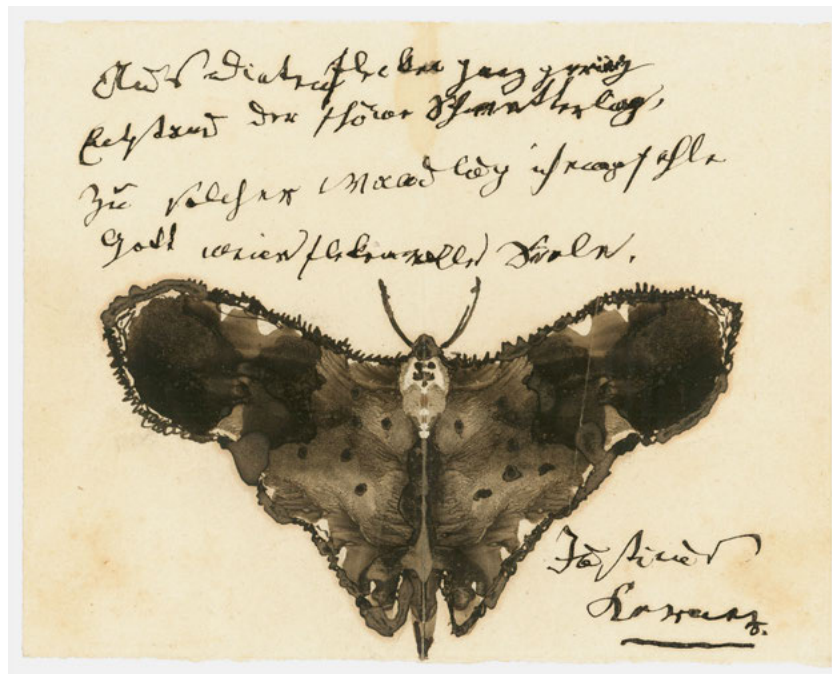 Aus Dintenflecken ganz gering
Entstand der schöne Schmetterling,
Zu solcher Wandlung ich empfehle
Gott meine fleckenvolle Seele.
Justinus
Kerner.